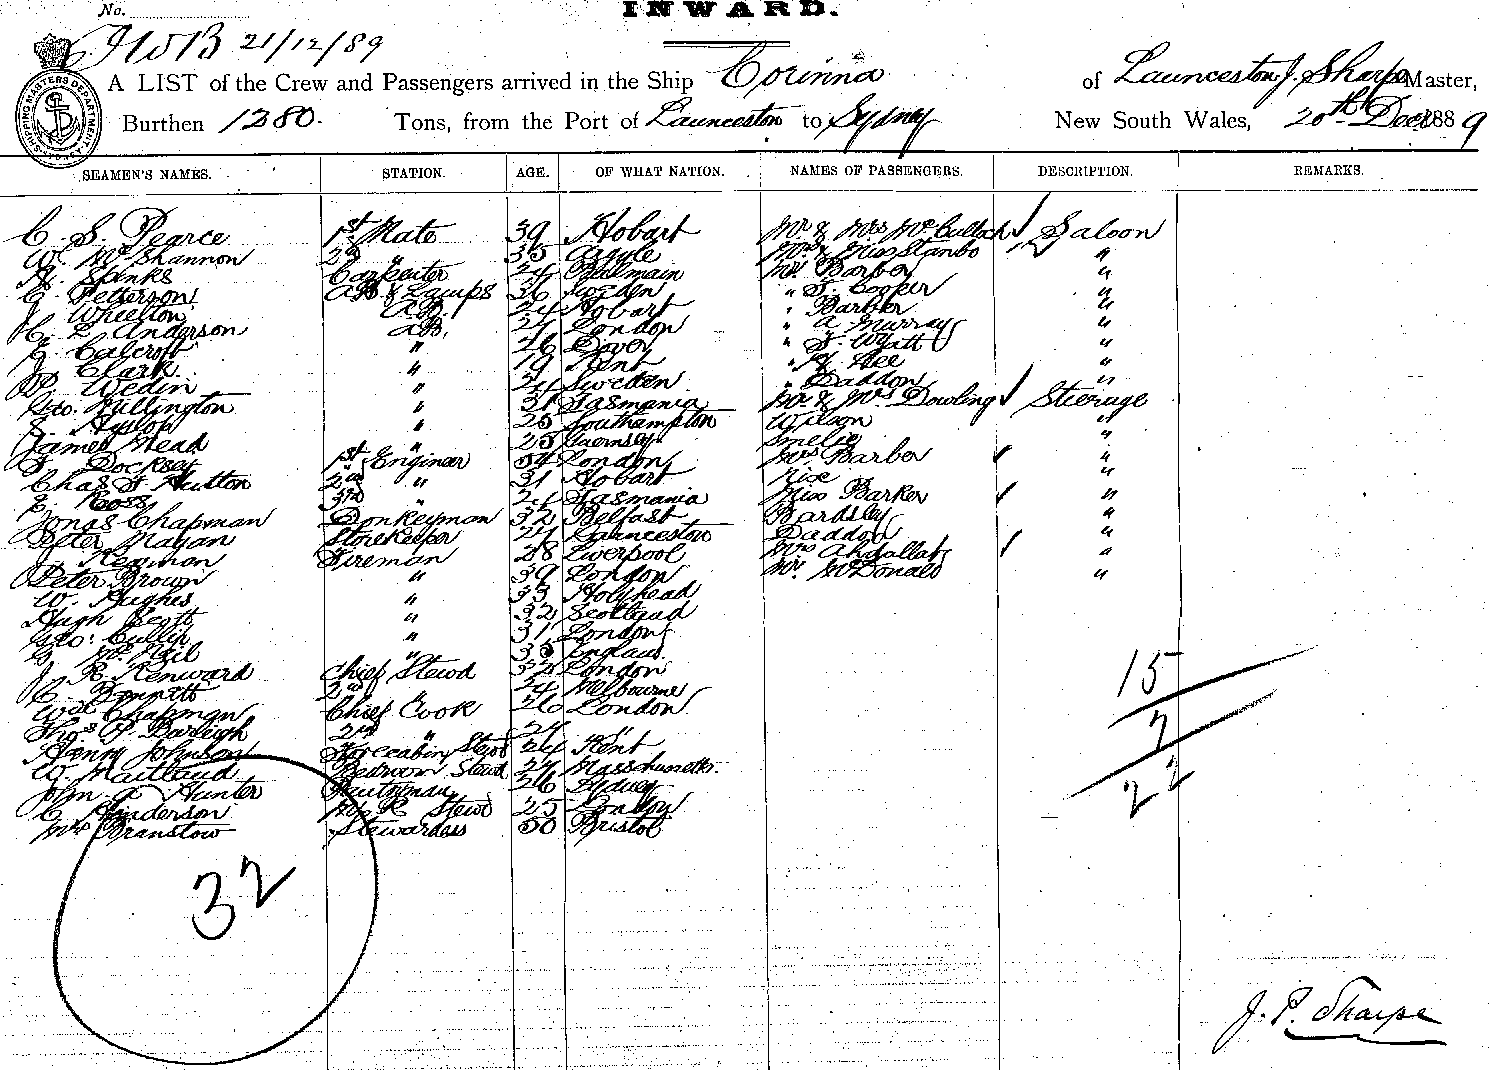 No.
INWARD.
21/12/89
A LIST of the Crew and Passengers arrived in the Ship Corinna of Launceston J. Sharpe Master,
Burthen 1280. Tons, from the Port of Launceston to Sydney New South Wales, 20th Decr 1889
SHIPPING MASTERS DEPARTMENT
SEAMEN'S NAMES. STATION. AGE. OF WHAT NATION. NAMES OF PASSENGERS. DESCRIPTION. REMARKS.
C. S. Pearce 1st Mate 39 Hobart Mr & Mrs McCullah Saloon
W. McShannon 2nd " 35 Argyle Mr & Miss Stanbo "
Spinks Carpenter 24 Balmain Mr Barber "
C. Petterson AB & Lamps 36 Sweden " Cooper "
J. Wheelton A.B. 24 Hobart " Barber "
C. L. Anderson A.B. London " A Murray "
Calcroft " 26 Dover " Wyatt "
J. Clark " 19 Kent " Lee "
Wedin " 24 Sweden " Daddon "
Geo. Hillington " 31 Tasmania Mr & Mrs Dowling Steerage
Hyslop " 25 Southampton Wilson "
James Mead " 25 Guernsey Smelie "
Docksey 1st Engineer 54 London Mrs Barber "
Chas F Hutton 2nd " 31 Hobart Rise "
Ross 3rd " 24 Tasmania Miss Barker "
Jonas Chapman Donkeyman 32 Belfast Bardsley "
Peter Magan Storekeeper 27 Launceston Daddon "
J. Keenan Fireman 28 Liverpool Mrs "
Peter Brown " 39 London Mr McDonald "
W. Hughes " 33 Holyhead
Hugh Scott " 32 Scotland
Geo: Cullin " 31 London
McNeil " 35 England
J. R. Kenward Chief Stewd 32 London
C. Bennett 2nd " 24 Melbourne
Wm Chapman Chief Cook 26 London
Thos P. Burleigh 2nd " "
Henry Johnson Forecabin Stewd 24 Kent
W. Maitland Bedroom Stewd 27 Masschusetts.
John A Hunter Pantryman 26 Sydney
C. Henderson Stewd 25 London
Mrs Branstow Stewardess 50 Bristol
15
7
22
32
J. P. Sharpe